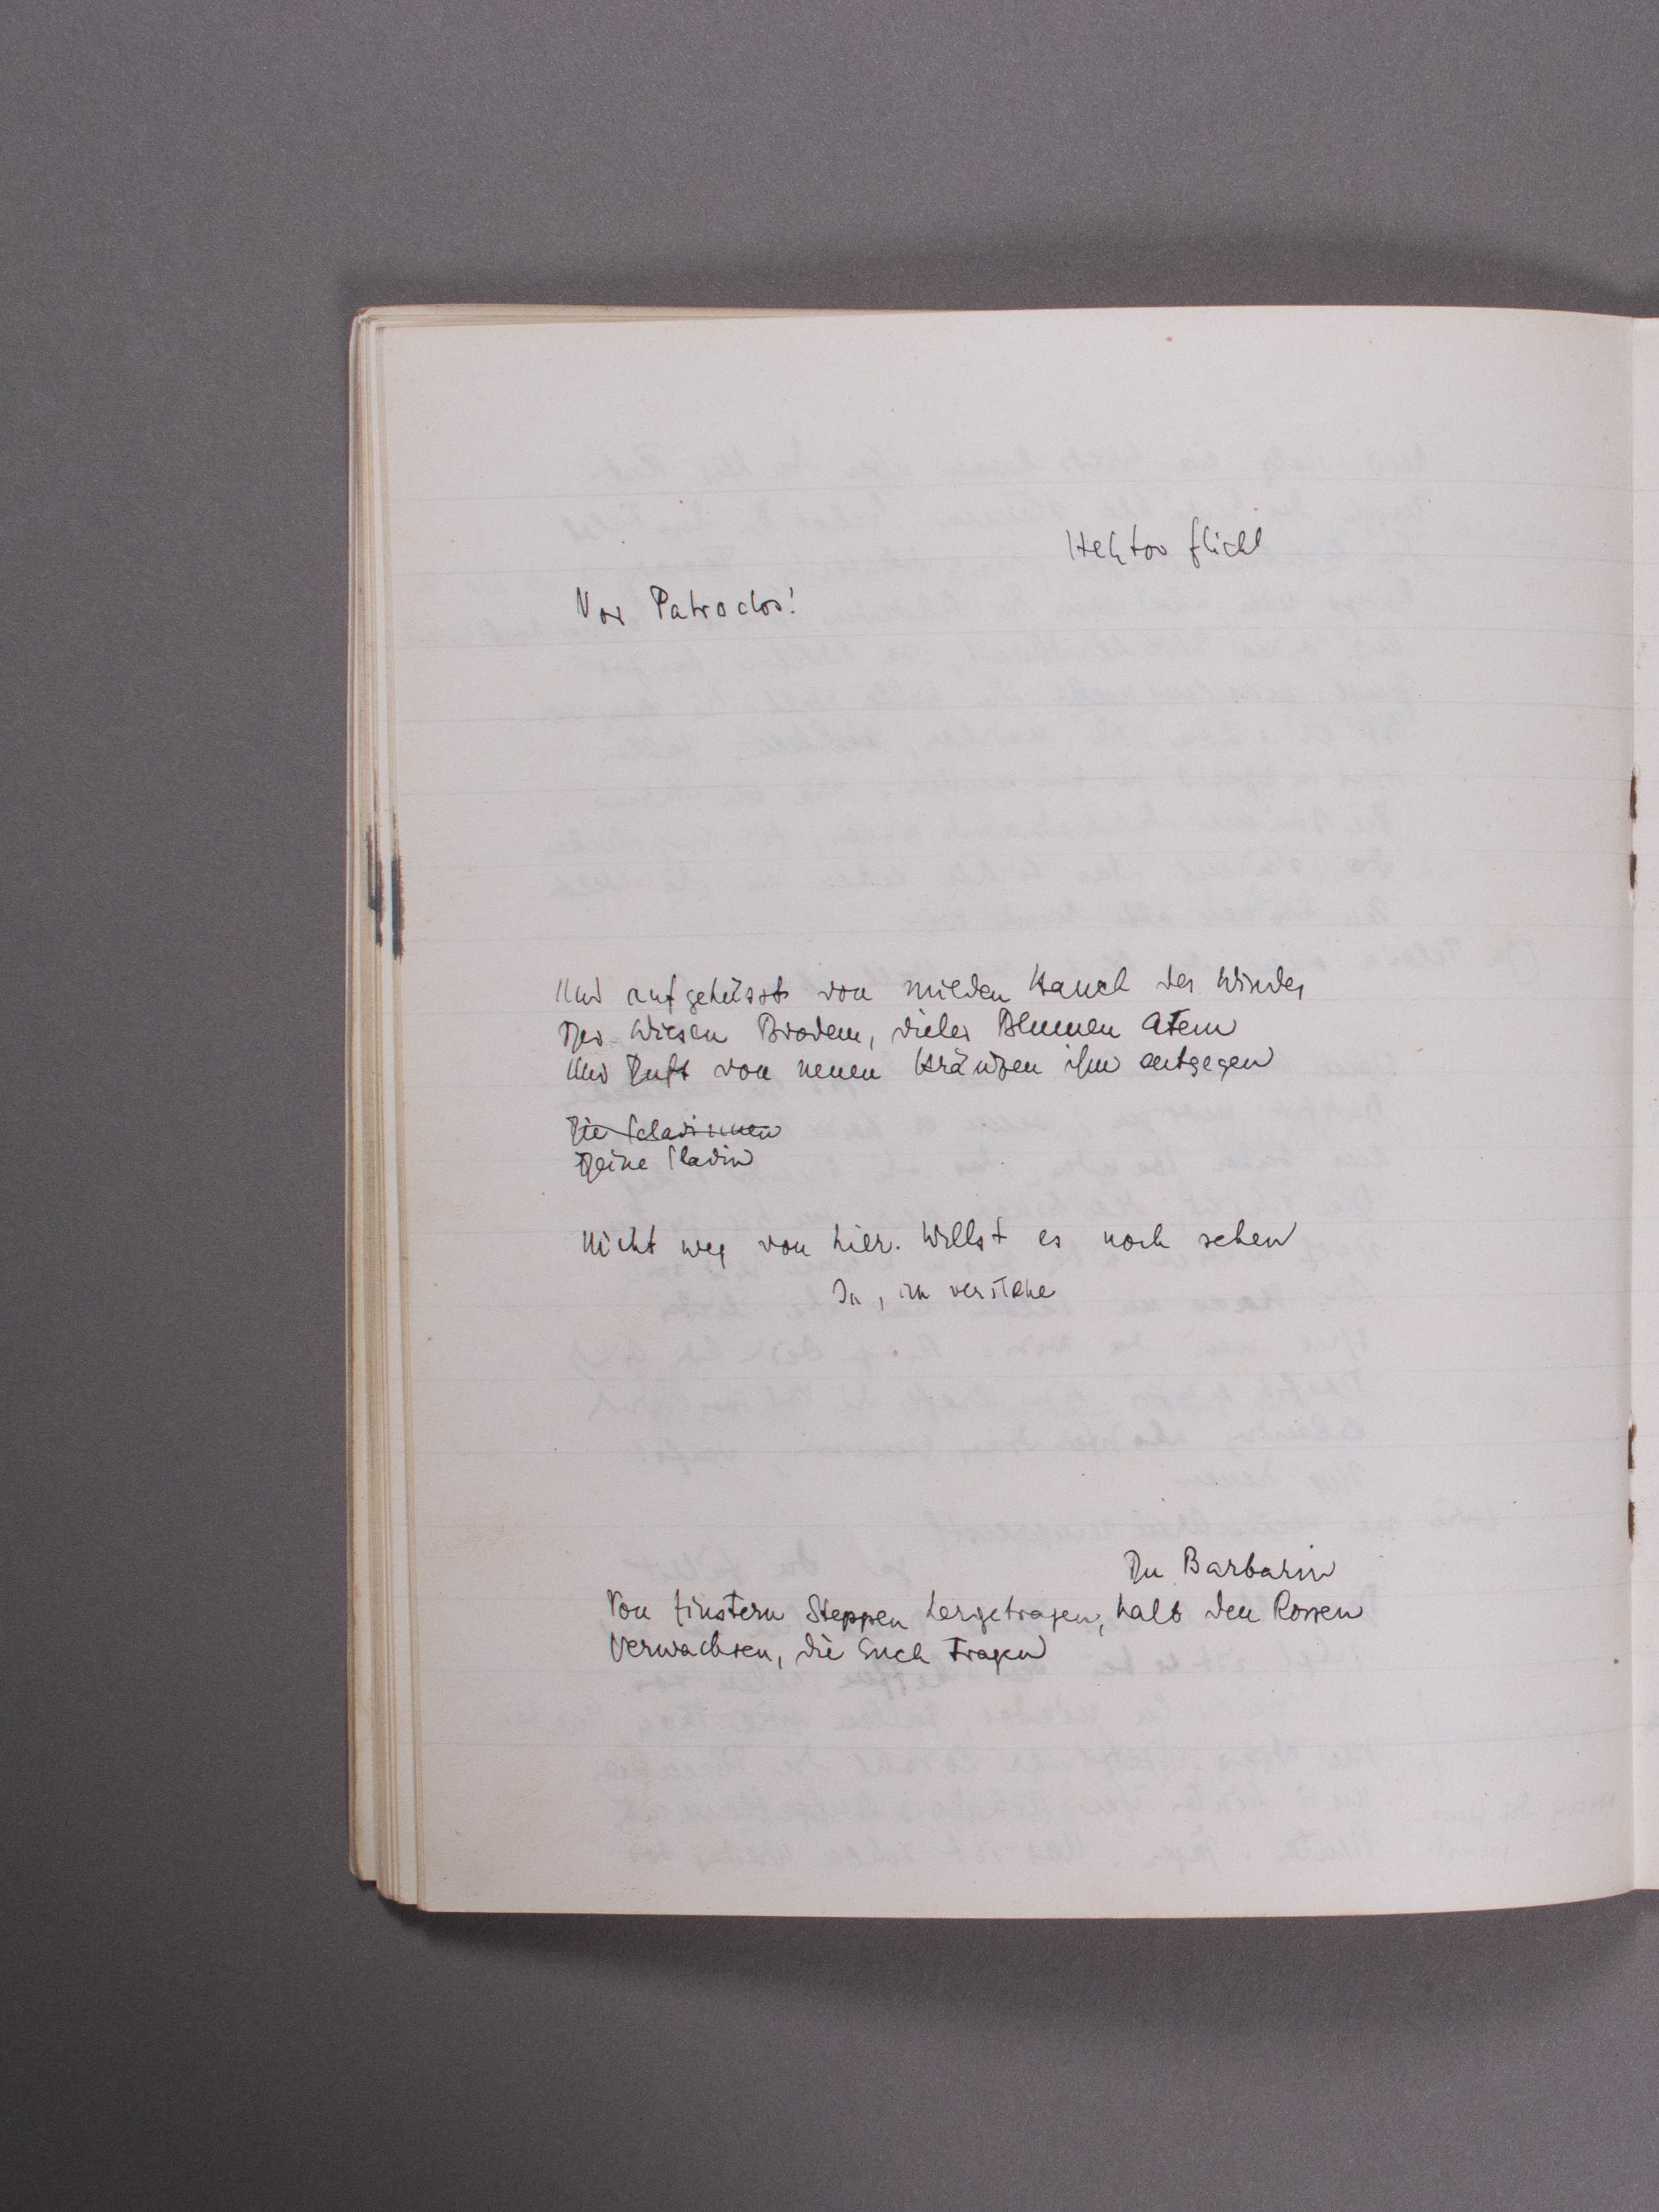 Hektor flieht
Vor Patroclos!
Und aufgeküsst von milden Hauch des Windes
Der Wiesen Brodem, vieler Blumen Atem
Und Duft von neuen Kränzen ihm entgegen
Die Sclavinnen
Deine Slavin
Nicht weg von hier. Willst es noch sehen
Ja, ich verstehe
Du Barbarin
Von finstern Steppen hergetragen, halb den Rossen
Verwachsen, die Euch tragen